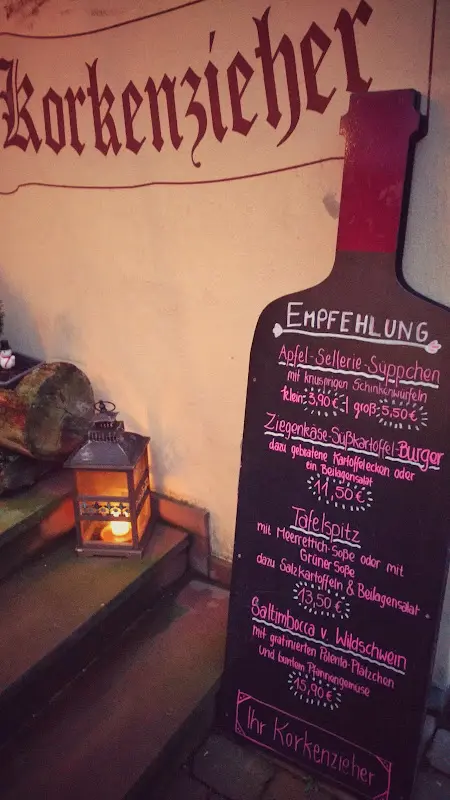 Korkenzieher
EMPFEHLUNG
Apfel-Sellerie-Süppchen
mit knusprigen Schinkenwürfeln
klein: 3,90€ | groß: 5,50€
Ziegenkäse-Süßkartoffel-Burger
dazu gebratene Kartoffelecken oder
ein Beilagensalat
11,50€
Tafelspitz
mit Meerrettich-Soße oder mit
Grüner Soße
dazu Salzkartoffeln & Beilagensalat
13,50€
Saltimbocca v. Wildschwein
mit gratinierten Polenta-Plätzchen
und buntem Pfannengemüse
15,90€
Ihr Korkenzieher